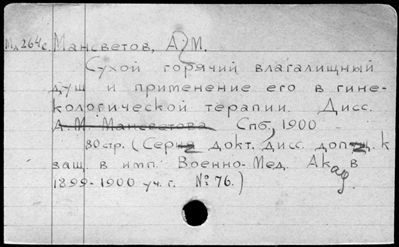 Мл264с. Мансветов, А. М.
Сухой горячий влагалищный
душ и применение его в гине-
кологической терапии. Дисс.
А. М. Мансветова Спб, 1900
80стр. (Серия докт. дисс. допущ. к
защ. в имп. Военно-Мед. Акад в
1899-1900 уч. г. №76.)